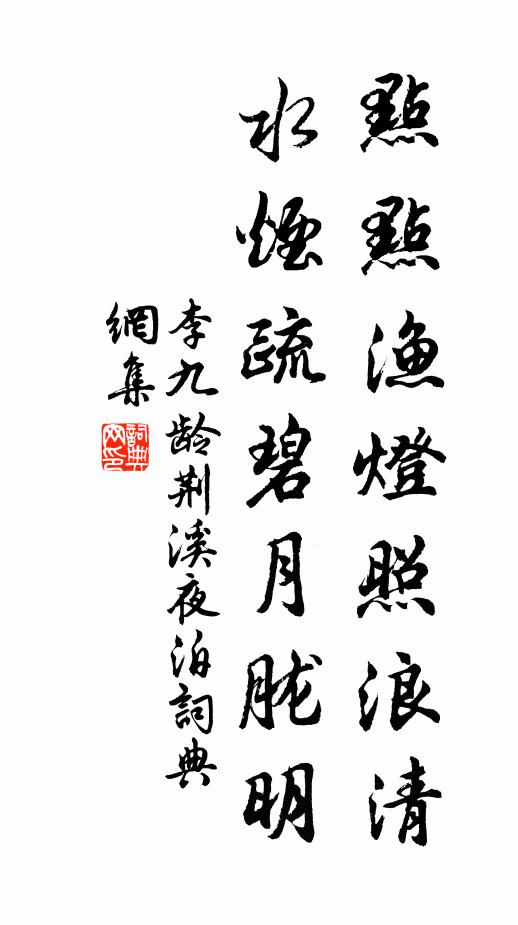 點點渔燈照浪清
水煙疏碧月胧明
李九龄荆溪夜泊詞典
網集
詞典
网印